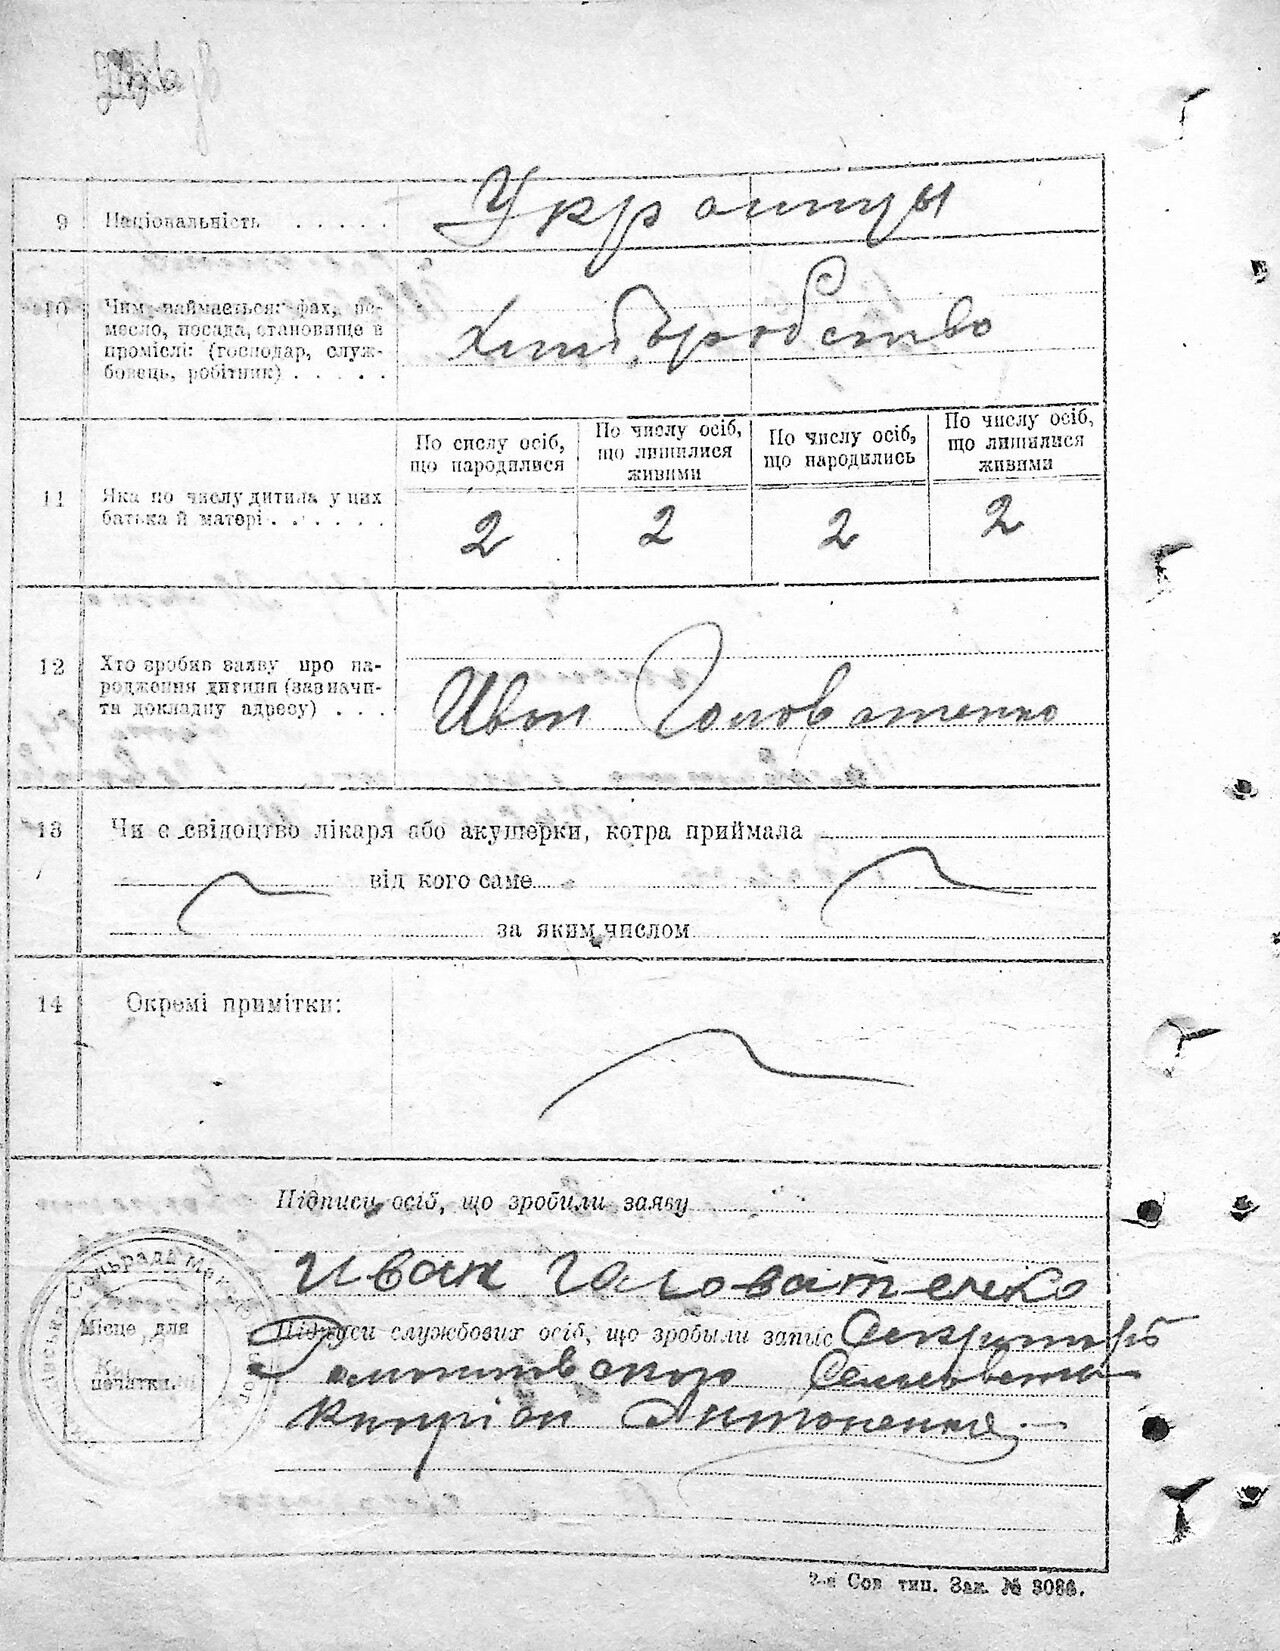 9 Національність . . . . . Украинцы
10 Чим займається: фах, ре-
месло, посада, становище в
проміслі: (господар, служ-
бовець, робітник) . . . . .
Хлиборобство
По сислу осіб, що народилися
По числу осіб, що лишилися живими
По числу осіб, що народились
По числу осіб, що лишилися живими
11 Яка по числу дитина у цих
батька й матері . . . . . .
2 2 2 2
12 Хто зробив заяву про на-
родження дитини (зазначи-
ти докладну адресу) . . .
Иван Головатенко
13 Чи є свідоцтво лікаря або акушерки, котра приймала
від кого саме
за яким числом
14 Окремі примітки:
Підписи осіб, що зробили заяву
Иван Головатенко
Підписи службових осіб, що зробыли запис Секритарь
Сельсовета
Киприан Антоненко
Місце для
печатки.
2-а Сов тип. Зак. № 3086.